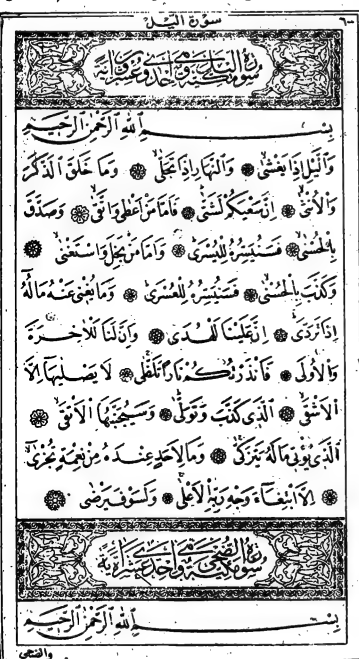 سورة اليل ٦٠٠
سورة الليل مكية وهي احدى وعشرون آية
بِسْمِ اللهِ الرَّحْمٰنِ الرَّحِيمِ
وَالَّيْلِ اِذَا يَغْشٰى ❁ وَالنَّهَارِ اِذَا تَجَلّٰى ❁ وَمَا خَلَقَ الذَّكَرَ
وَالْاُنْثٰى ❁ اِنَّ سَعْيَكُمْ لَشَتّٰى ❁ فَاَمَّا مَنْ اَعْطٰى وَاتَّقٰى ❁ وَصَدَّقَ
بِالْحُسْنٰى ❁ فَسَنُيَسِّرُهُ لِلْيُسْرٰى ❁ وَاَمَّا مَنْ بَخِلَ وَاسْتَغْنٰى ❁
وَكَذَّبَ بِالْحُسْنٰى ❁ فَسَنُيَسِّرُهُ لِلْعُسْرٰى ❁ وَمَا يُغْنِى عَنْهُ مَالُهُ
اِذَا تَرَدّٰى ❁ اِنَّ عَلَيْنَا لَلْهُدٰى ❁ وَاِنَّ لَنَا لَلْاٰخِرَةَ
وَالْاُولٰى ❁ فَاَنْذَرْتُكُمْ نَارًا تَلَظّٰى ❁ لَا يَصْلٰيهَا اِلَّا
الْاَشْقٰى ❁ اَلَّذِى كَذَّبَ وَتَوَلّٰى ❁ وَسَيُجَنَّبُهَا الْاَتْقٰى ❁
اَلَّذِى يُؤْتِى مَالَهُ يَتَزَكّٰى ❁ وَمَا لِاَحَدٍ عِنْدَهُ مِنْ نِعْمَةٍ تُجْزٰى
❁ اِلَّا ابْتِغَاءَ وَجْهِ رَبِّهِ الْاَعْلٰى ❁ وَلَسَوْفَ يَرْضٰى ❁
سورة الضحى مكية وهي احدى عشرة آية
بِسْمِ اللهِ الرَّحْمٰنِ الرَّحِيمِ
والضحى